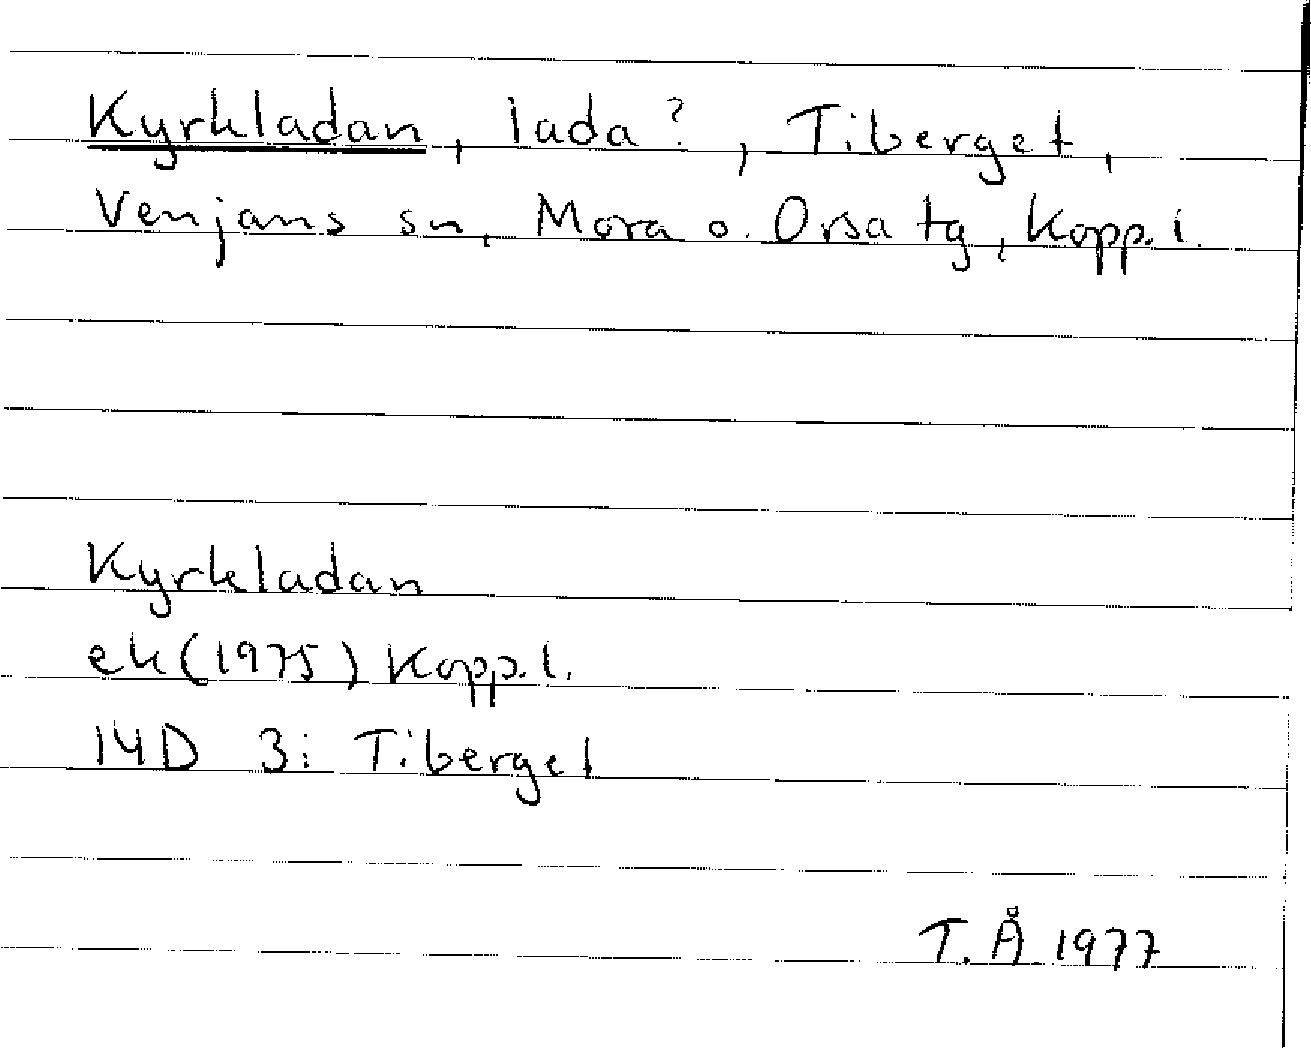 Kyrkladan, lada?, Tiberget,
Venjans sn, Mora o. Orsa tg, Kopp. l.
Kyrkladan
ek (1975) Kopp. l.
14D 3i Tiberget
T. Å. 1977